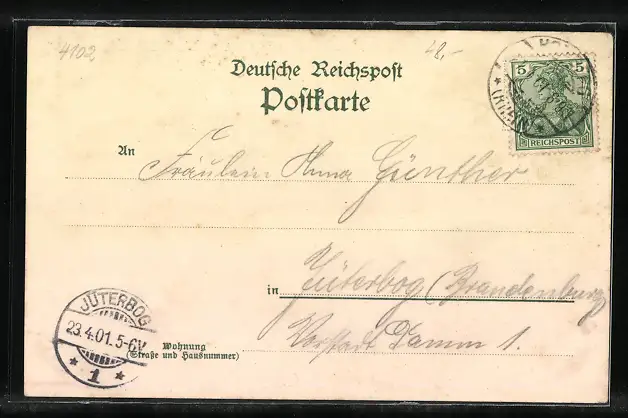 4102
48,-
Deutsche Reichspost
Postkarte
5 5
REICHSPOST
An Fräulein Anna Günther
in Jüterbog (Brandenburg)
Wohnung
(Straße und Hausnummer)
Vorstadt Damm 1.
JÜTERBOG
23.4.01.5-6V.
* 1 *